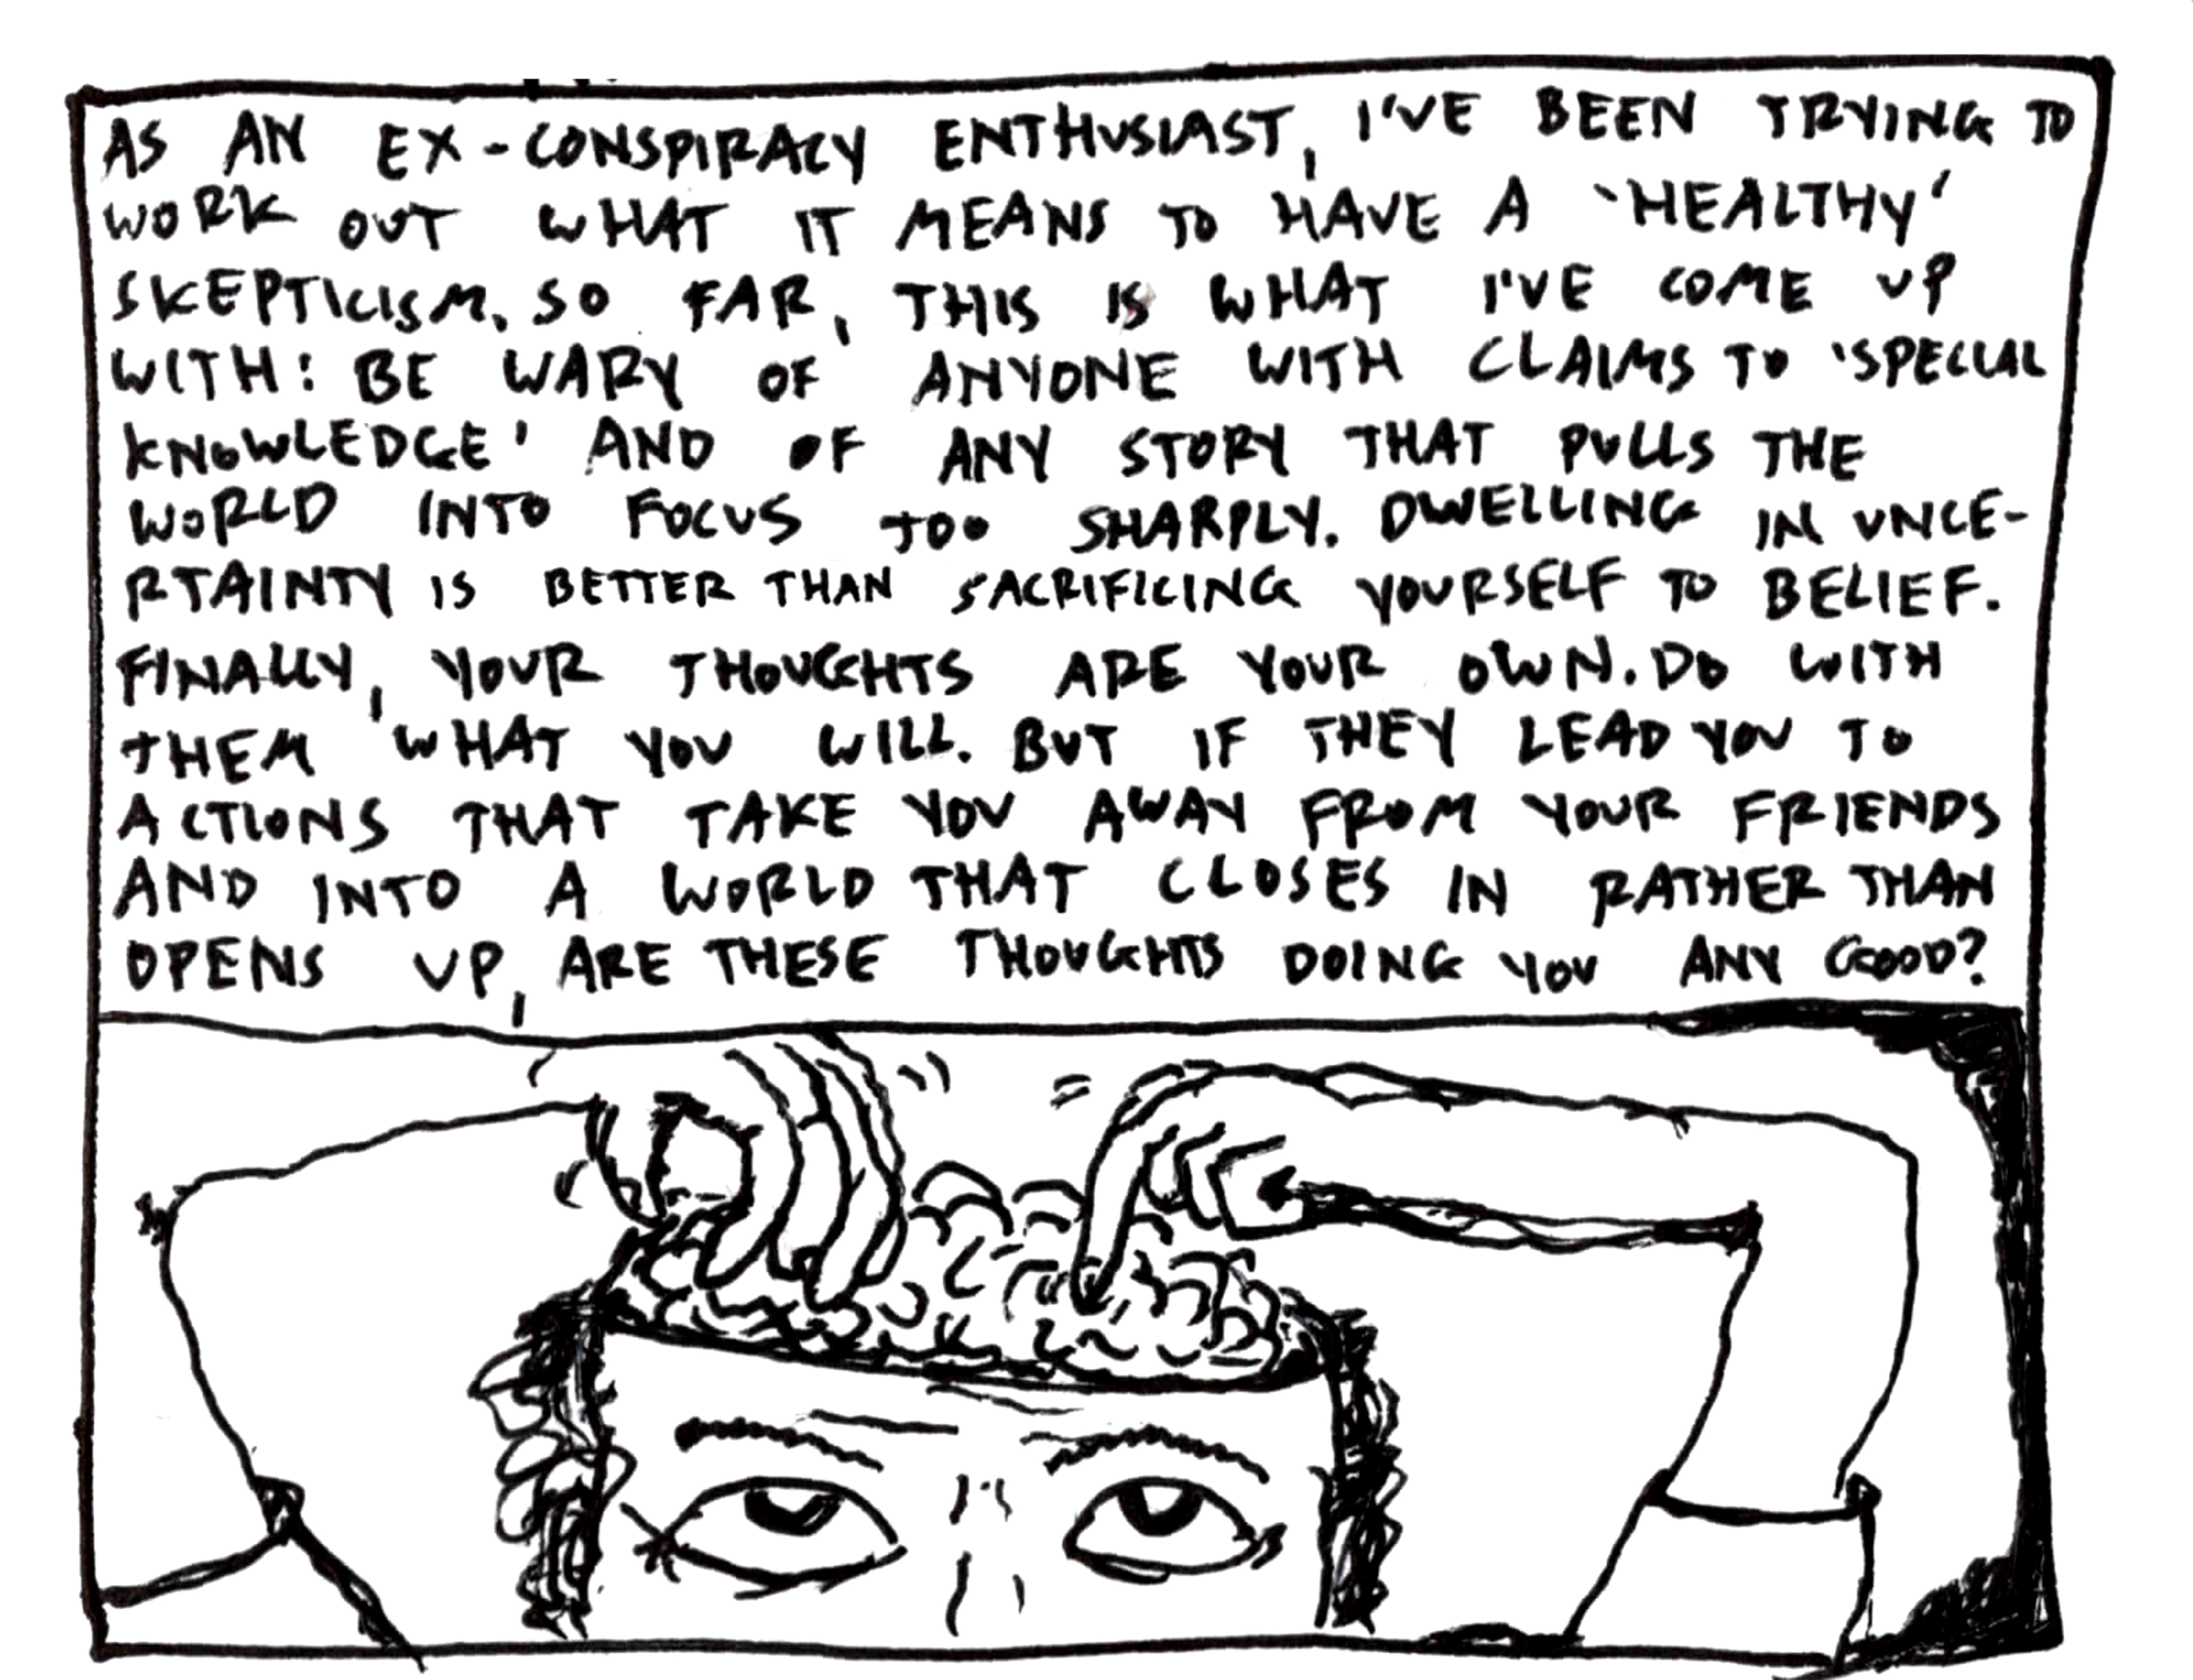 AS AN EX-CONSPIRACY ENTHUSIAST, I'VE BEEN TRYING TO
WORK OUT WHAT IT MEANS TO HAVE A 'HEALTHY'
SKEPTICISM. SO FAR, THIS IS WHAT I'VE COME UP
WITH: BE WARY OF ANYONE WITH CLAIMS TO 'SPECIAL
KNOWLEDGE' AND OF ANY STORY THAT PULLS THE
WORLD INTO FOCUS TOO SHARPLY. DWELLING IN UNCE-
RTAINTY IS BETTER THAN SACRIFICING YOURSELF TO BELIEF.
FINALLY, YOUR THOUGHTS ARE YOUR OWN. DO WITH
THEM WHAT YOU WILL. BUT IF THEY LEAD YOU TO
ACTIONS THAT TAKE YOU AWAY FROM YOUR FRIENDS
AND INTO A WORLD THAT CLOSES IN RATHER THAN
OPENS UP, ARE THESE THOUGHTS DOING YOU ANY GOOD?